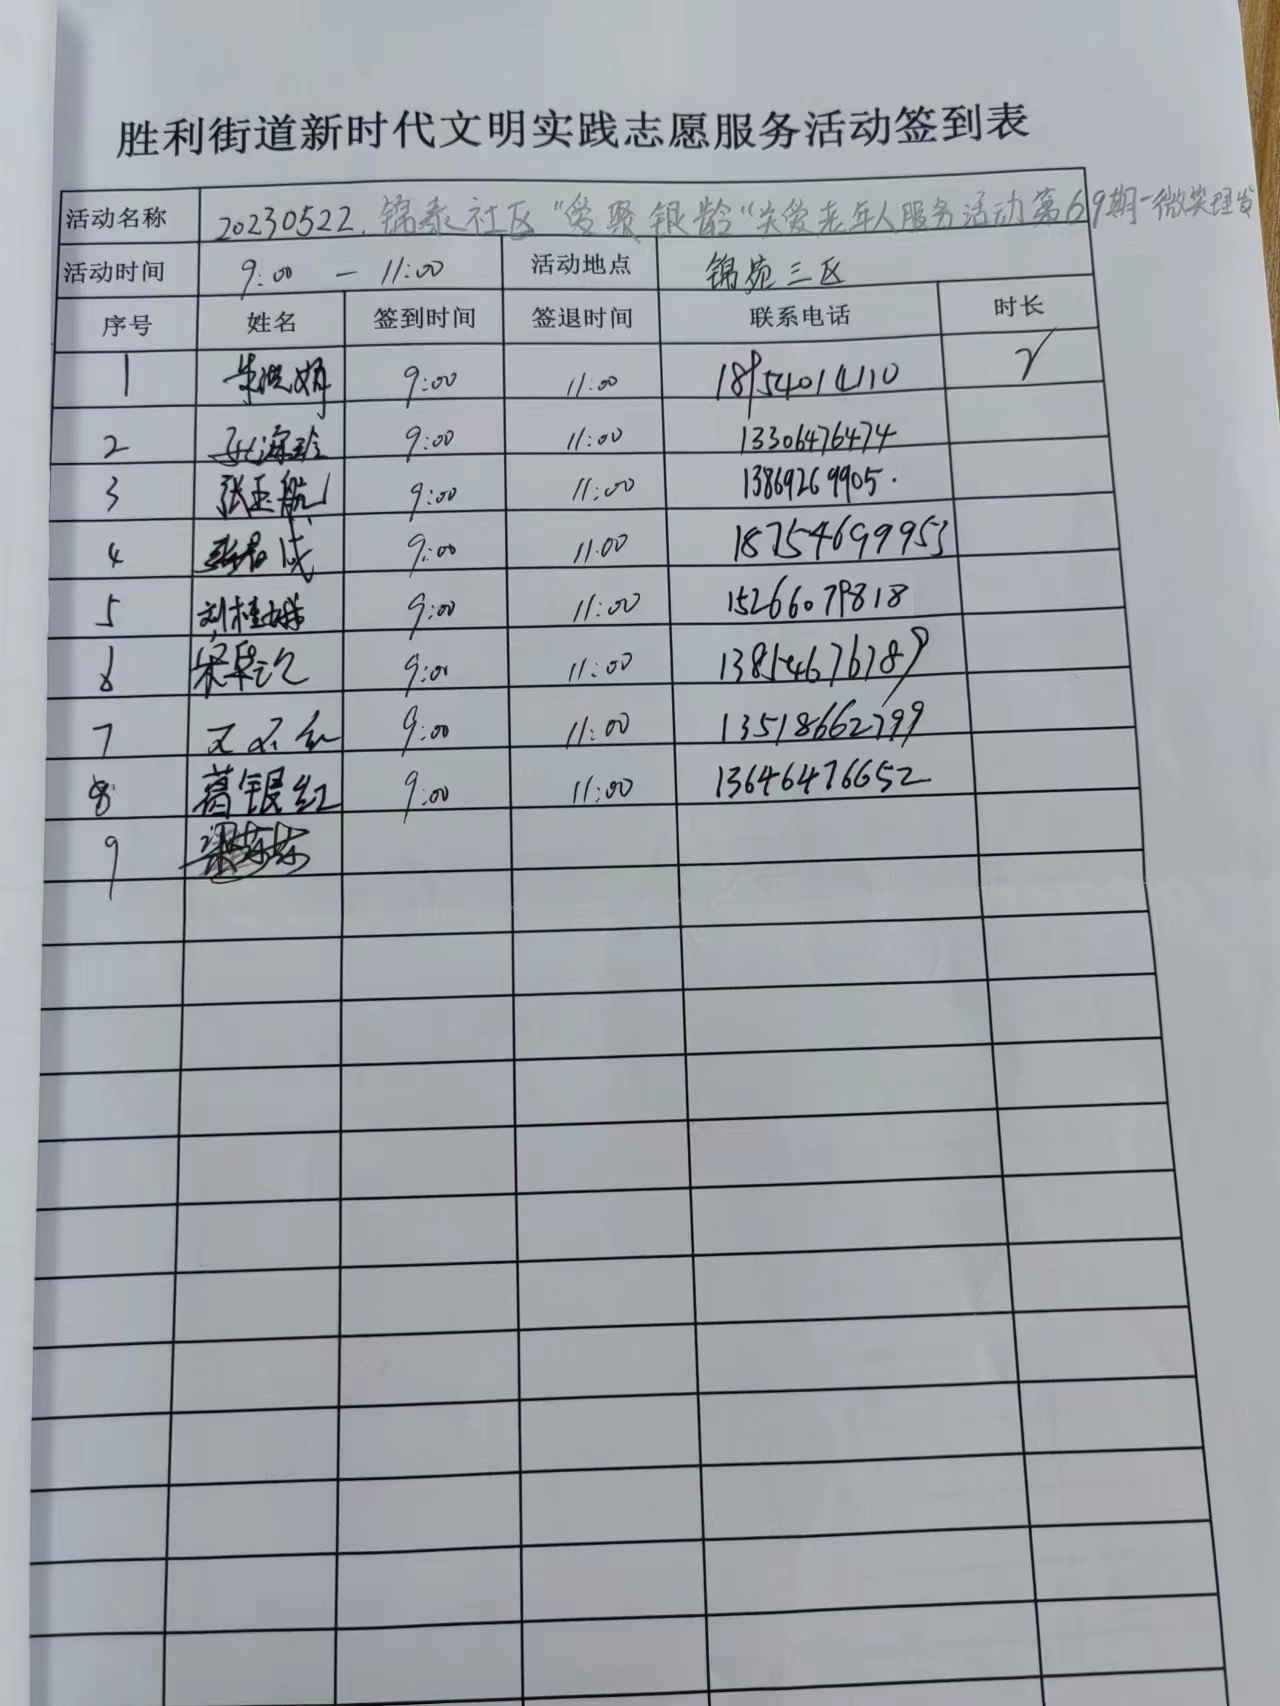 胜利街道新时代文明实践志愿服务活动签到表
活动名称 20230522.锦泰社区"爱聚银龄"关爱老年人服务活动第69期-微笑理发
活动时间 9:00 — 11:00 活动地点 锦苑三区
序号 姓名 签到时间 签退时间 联系电话 时长
1 9:00 11:00 18954014110 2
2 9:00 11:00 13306476474
3 张玉航 9:00 11:00 13869269905.
4 9:00 11:00 18754699953
5 刘桂娥 9:00 11:00 15266079818
6 9:00 11:00 13854676789
7 9:00 11:00 13518662799
8 葛银红 9:00 11:00 13646476652
9